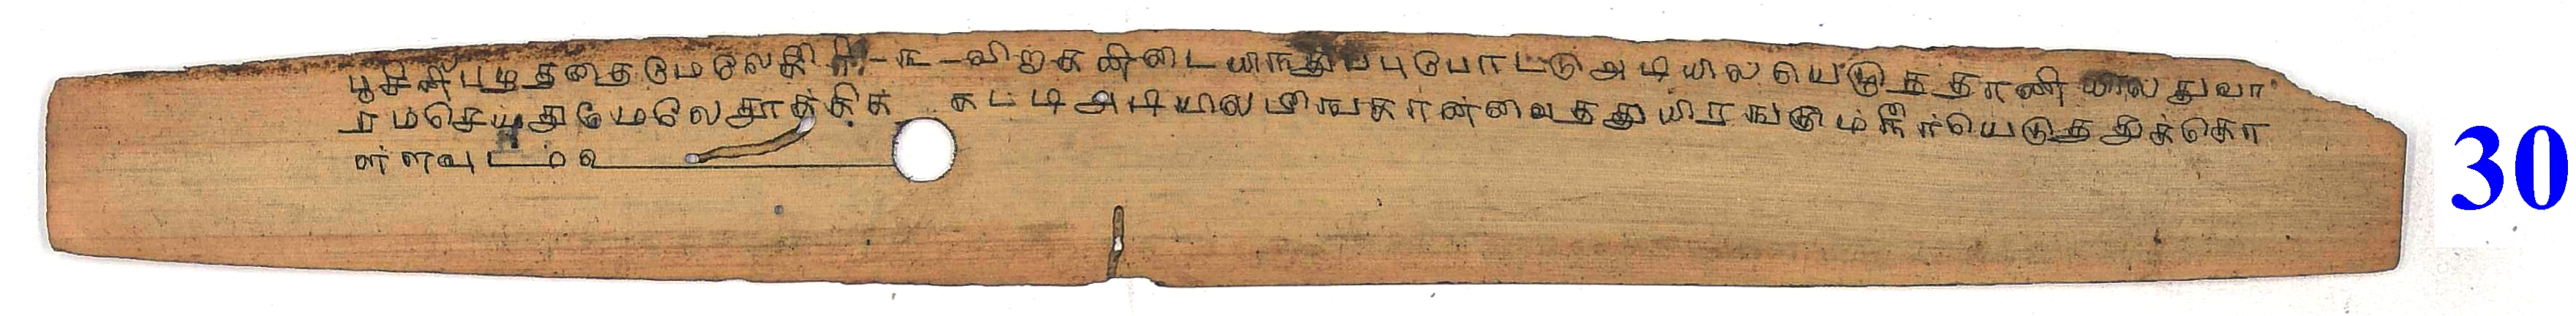 பூசிசிபபுடத்தைமேலேகீரி-௩-விறகினிடையிநதுப்புபோட்டுஅடியிலயெடுத்தாணியிலதுவா
ரம்செயதுமேலேதூக்கிக் கட்டிஅடியிலபீஙகான்வைத்துயிரஙகும்நீர்யெடுத்துக்கொ
ள்ளவுடம௨
30